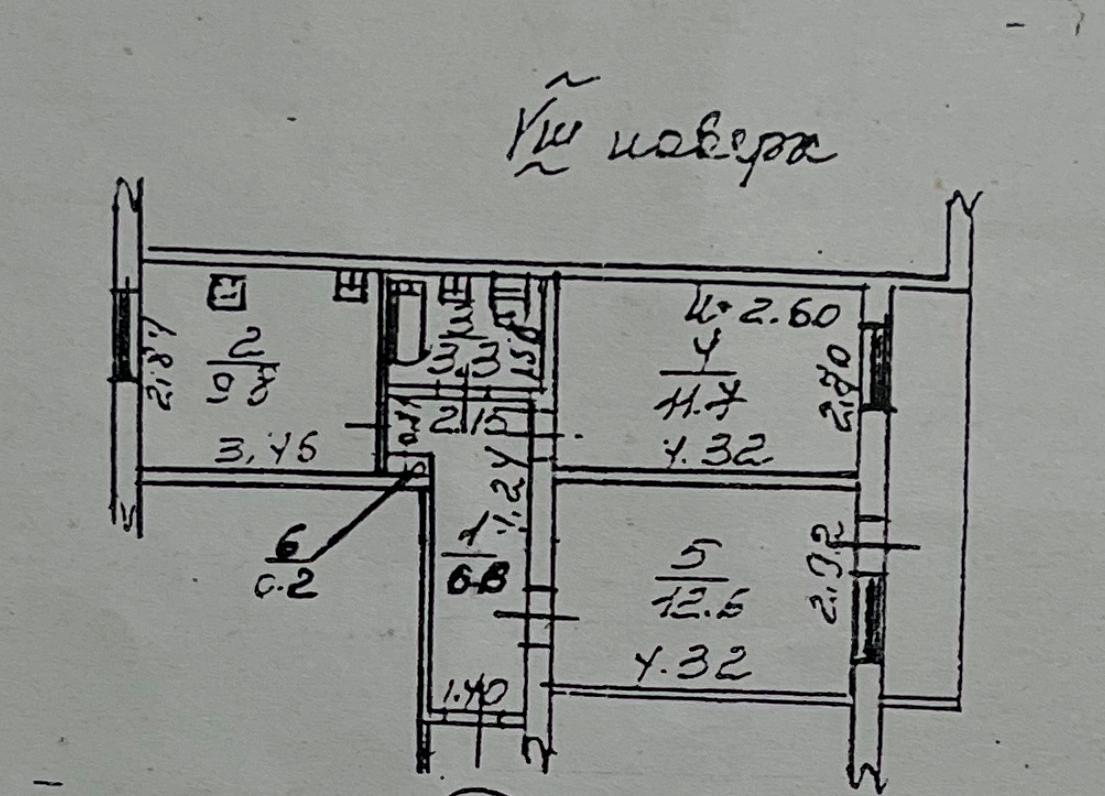 VIII поверх
h-2.60
2
2.87
3.3
4
11.7
2.70
2.15
3.45
4.32
4.24
6
0.2
1
6.8
5
12.6
2.92
4.32
1.40